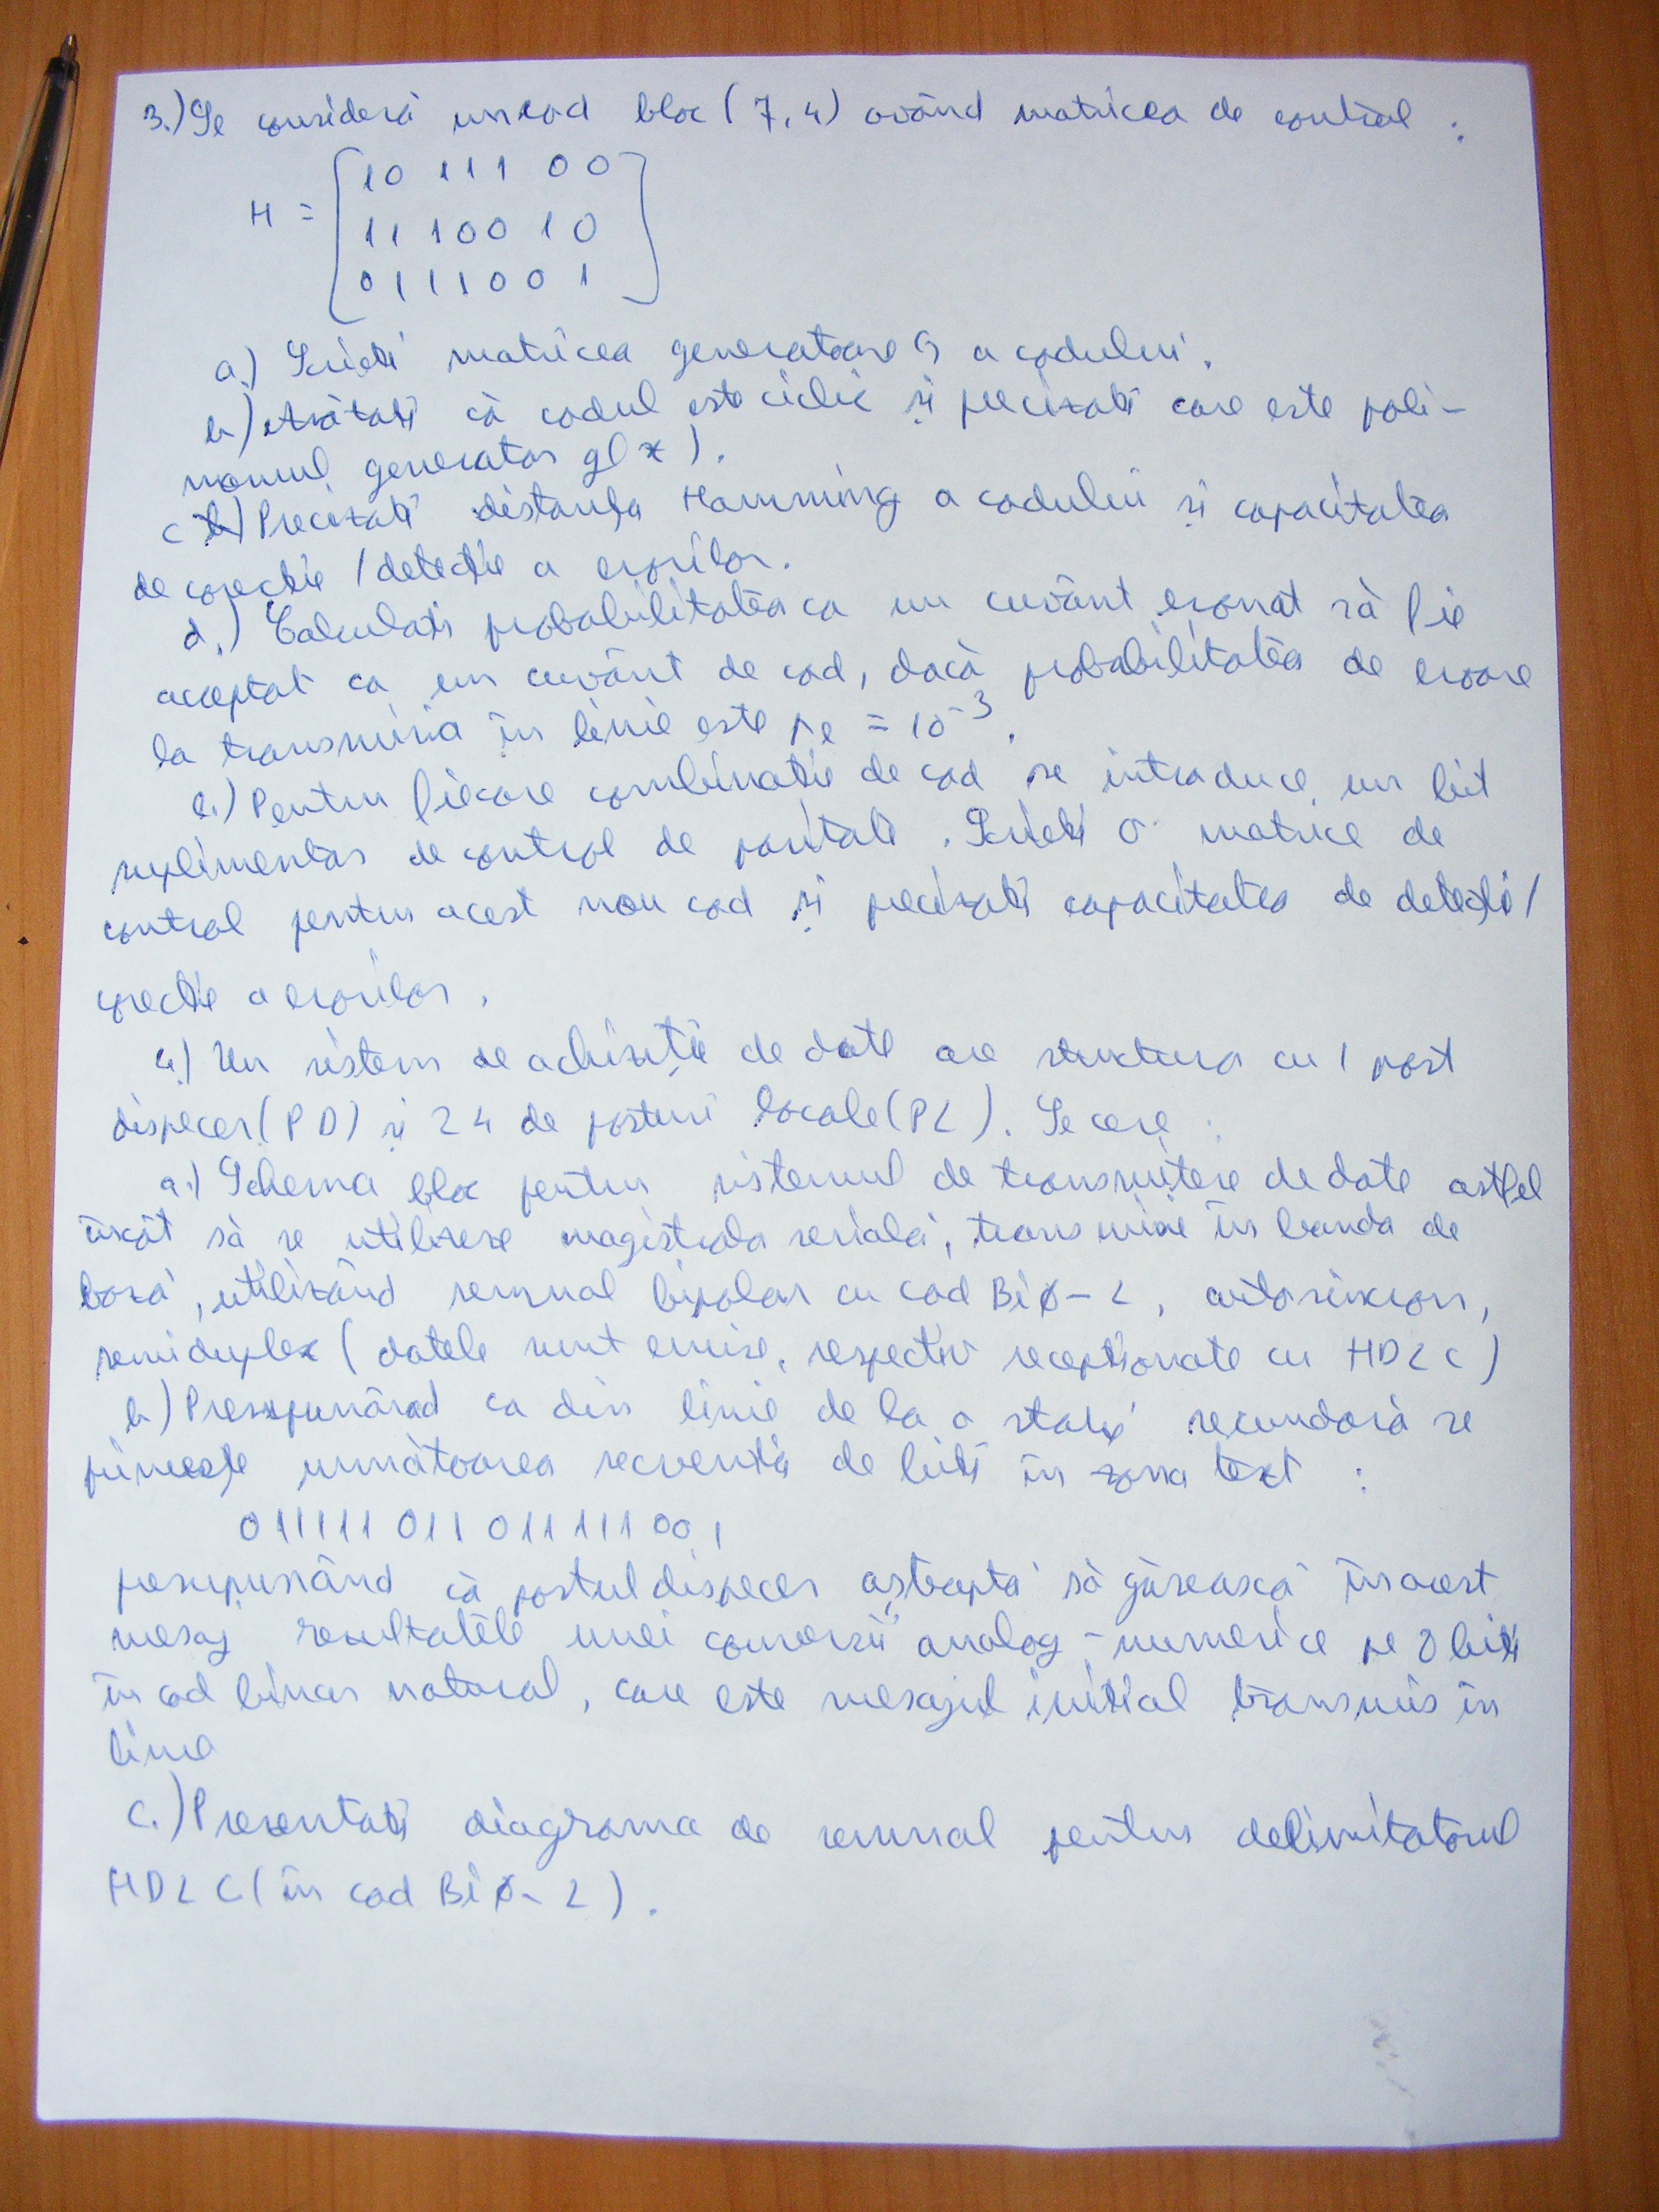 3.) Se consideră un cod bloc (7,4) având matricea de control :
H = [ 10 111 00
11 100 10
0111001 ]
a.) Scrieți matricea generatoare G a codului.
b.) Arătați că codul este ciclic și precizați care este poli-
nomul generator g(x).
c) Precizați distanța Hamming a codului și capacitatea
de corecție / detecție a erorilor.
d.) Calculați probabilitatea ca un cuvânt eronat să fie
acceptat ca un cuvânt de cod, dacă probabilitatea de eroare
la transmisia în linie este pe = 10^-3.
e.) Pentru fiecare combinație de cod se introduce un bit
suplimentar de control de paritate. Scrieți o matrice de
control pentru acest nou cod și precizați capacitatea de detecție /
corecție a erorilor.
4.) Un sistem de achiziție de date are structura cu 1 post
dispecer (PD) și 24 de posturi locale (PL). Se cere :
a.) Schema bloc pentru sistemul de transmitere de date astfel
încât să se utilizeze magistrala serială, transmisie în banda de
bază, utilizând semnal bipolar cu cod Biφ-L, autosincron,
semiduplex (datele sunt emise, respectiv recepționate cu HDLC)
b.) Presupunând ca din linie de la o stație secundară se
primește următoarea secvență de biți în zona text :
011111 011 01111100 1
presupunând că postul dispecer așteaptă să găsească în acest
mesaj rezultatele unei conversii analog-numerice pe 8 biți
în cod binar natural, care este mesajul inițial transmis în
linie
c.) Prezentați diagrama de semnal pentru delimitatorul
HDLC (în cod Biφ-L).